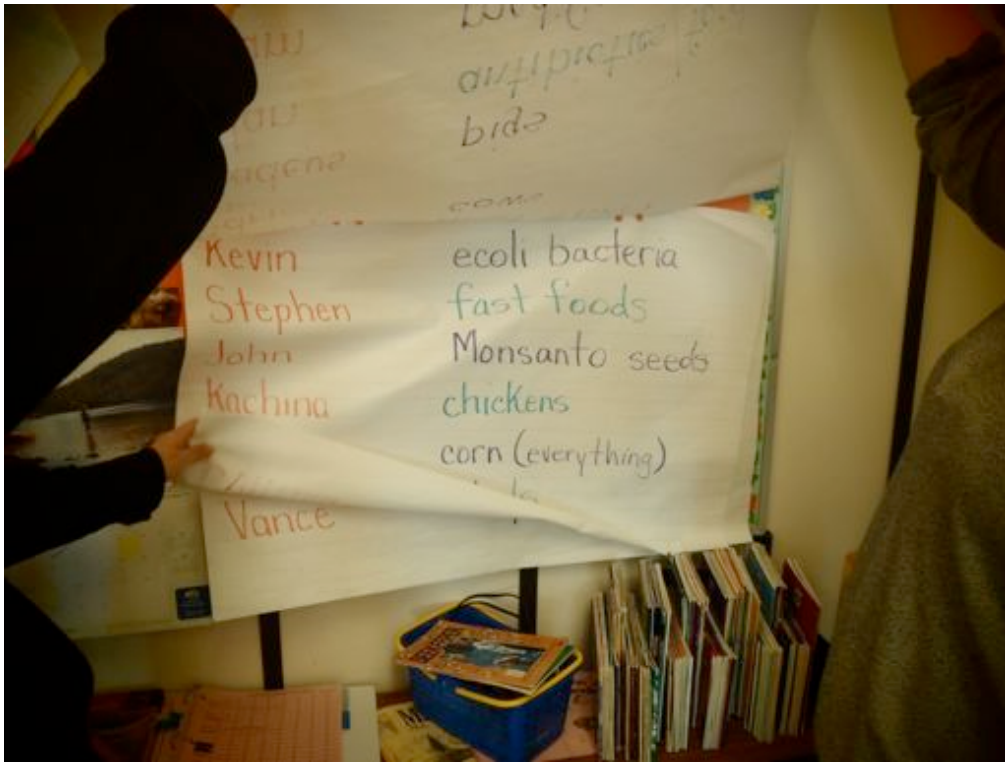 antibiotics
pigs
cows
Kevin ecoli bacteria
Stephen fast foods
John Monsanto seeds
Kachina chickens
corn (everything)
Vance